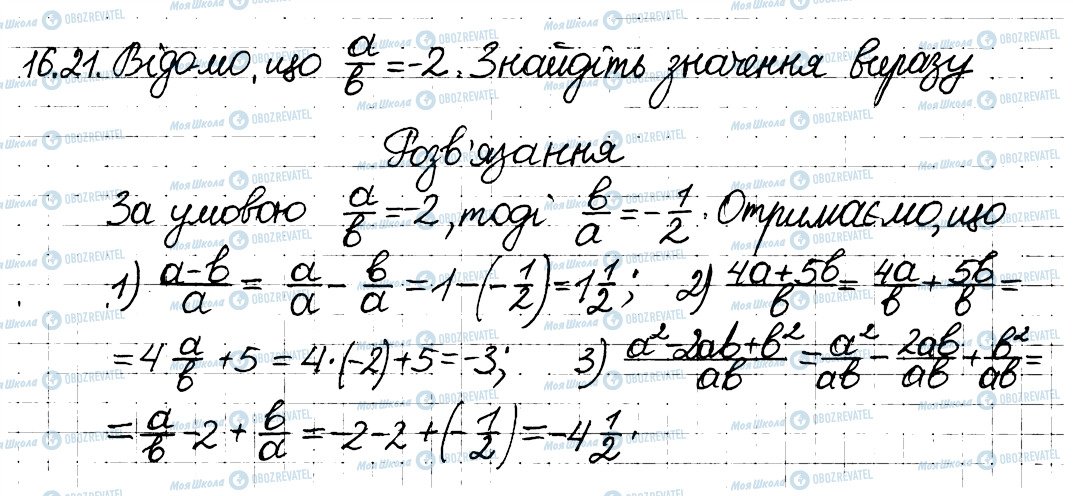 16.21. Відомо, що a/b = -2. Знайдіть значення виразу
Розв'язання
За умовою a/b = -2, тоді b/a = -1/2. Отримаємо, що
1) (a-b)/a = a/a - b/a = 1 - (-1/2) = 1 1/2; 2) (4a+5b)/b = 4a/b + 5b/b =
= 4 a/b + 5 = 4·(-2)+5 = -3; 3) (a²-2ab+b²)/ab = a²/ab - 2ab/ab + b²/ab =
= a/b - 2 + b/a = -2-2+(-1/2) = -4 1/2.
МояШкола OBOZREVATEL